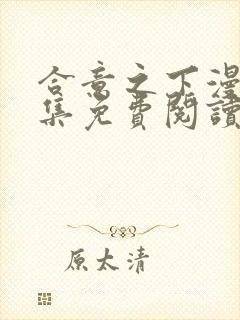 合意之下漫
集免費閱讀
原太清